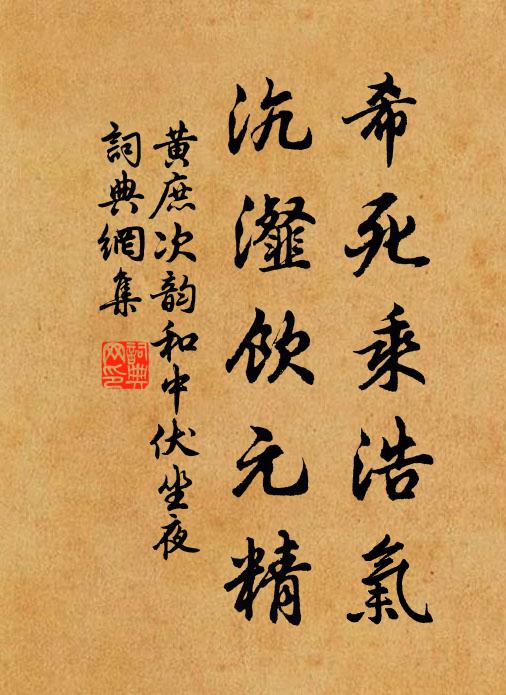 希死乘浩氣
沆瀣飲元精
黃庶次韵和中伏坐夜
詞典網集
詞典網印